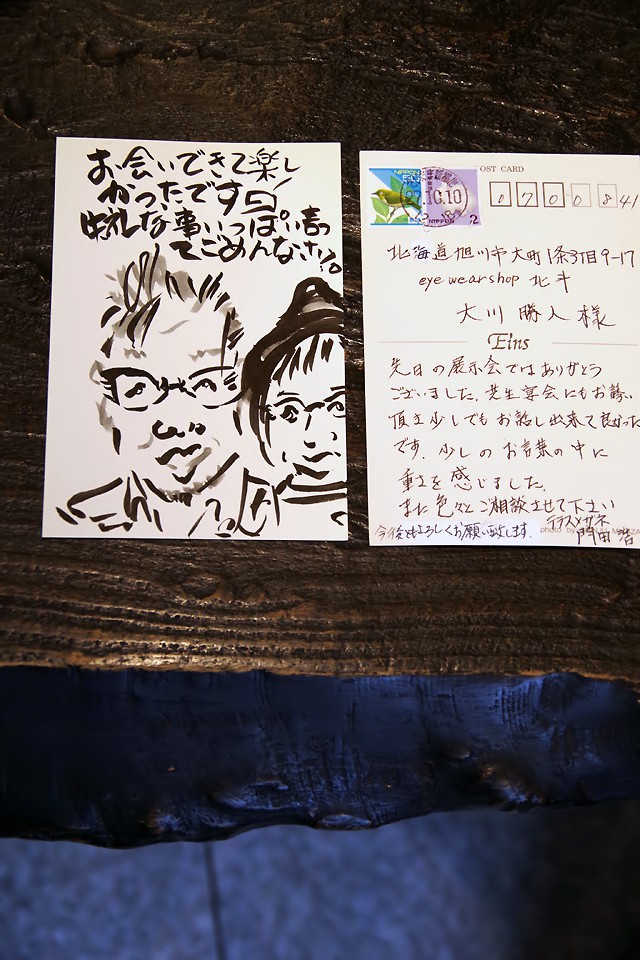 お会いできて楽し
かったです
失礼な事いっぱい言っ
てごめんなさい。
OST CARD
NIPPON
NIPPON
2
27.10.10
070 0841
北海道旭川市大町1条3丁目9-17
eye wear shop 北斗
大川 勝人 様
Eins
先日の展示会ではありがとう
ございました。先生宴会にもお誘い
頂き少しでもお話し出来て良かった
です。少しのお言葉の中に
重さを感じました。
また色々とご相談させて下さい
今後ともよろしくお願い致します。
テラスメガネ
photo by
門田